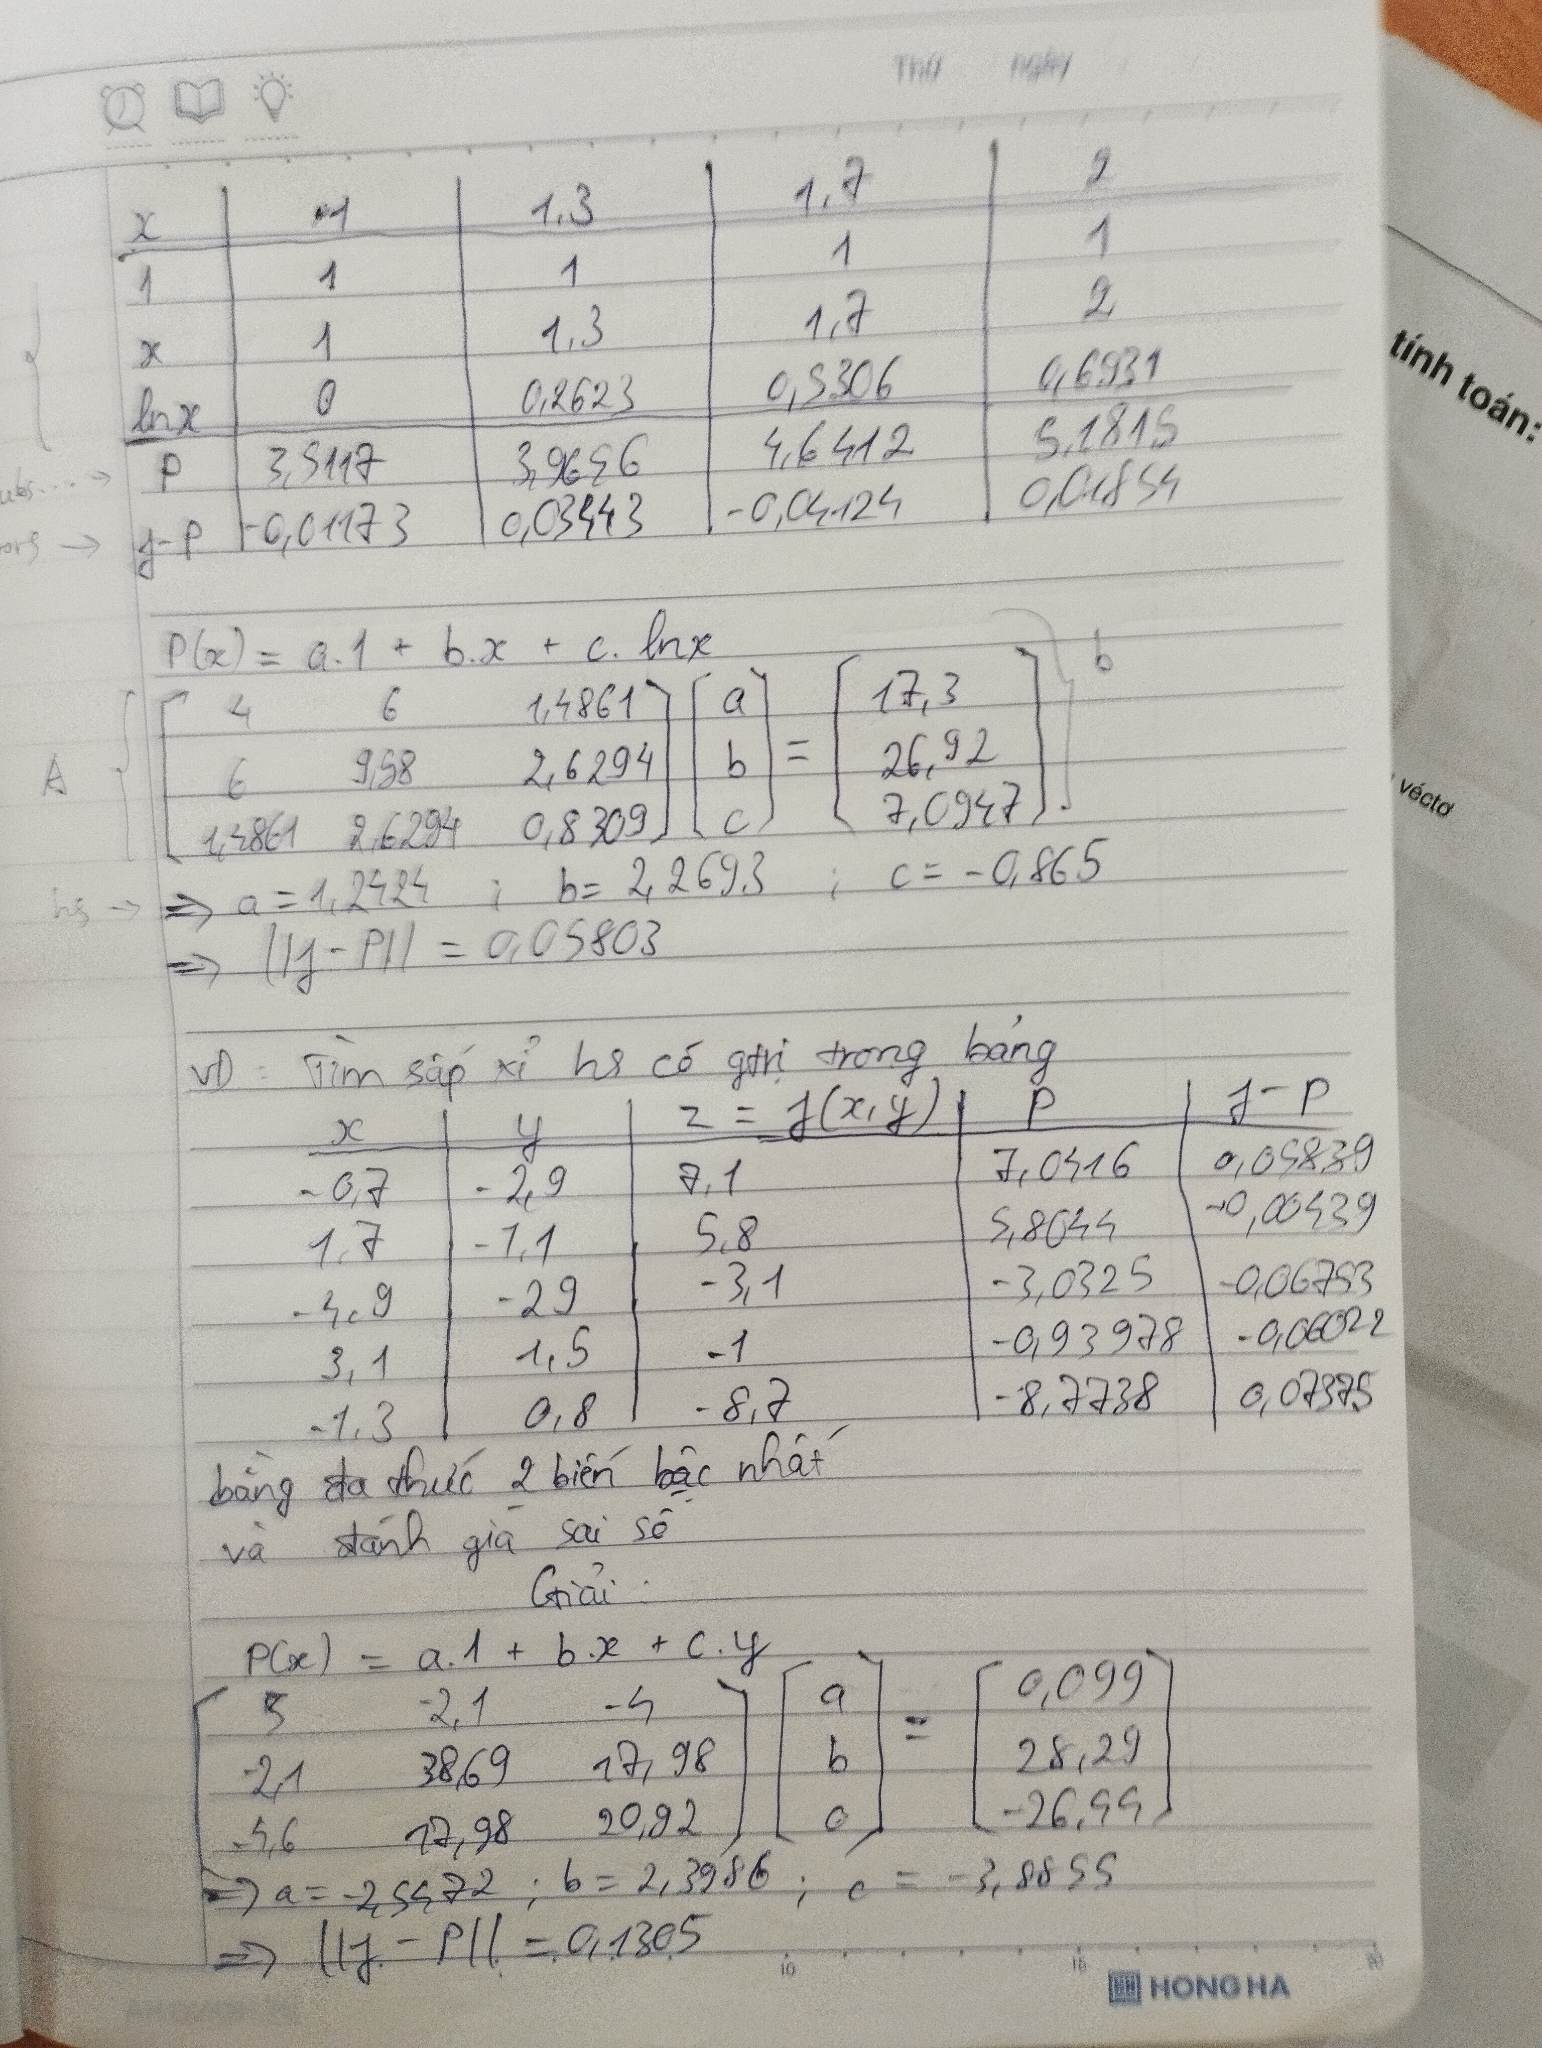 Thứ ngày
x | 1 | 1,3 | 1,7 | 2
1 | 1 | 1 | 1 | 1
x | 1 | 1,3 | 1,7 | 2
lnx | 0 | 0,2623 | 0,5306 | 0,6931
P | 3,5117 | 3,9656 | 4,6412 | 5,1815
f-P | -0,01173 | 0,03443 | -0,04124 | 0,01854
P(x) = a.1 + b.x + c.lnx
A [4 6 1,4861; 6 9,58 2,6294; 1,4861 2,6294 0,8309] [a; b; c] = [17,3; 26,92; 7,0947] b
hs → ⇒ a = 1,2424 ; b = 2,2693 ; c = -0,865
⇒ ||f - P|| = 0,05803
VD: Tìm sấp xỉ hs có gtrị trong bảng
x | y | z = f(x,y) | P | f - P
-0,7 | -2,9 | 7,1 | 7,0416 | 0,05839
1,7 | -1,1 | 5,8 | 5,8044 | -0,00439
-4,9 | -29 | -3,1 | -3,0325 | -0,06753
3,1 | 1,5 | -1 | -0,93978 | -0,06022
-1,3 | 0,8 | -8,7 | -8,7738 | 0,07375
bằng đa thức 2 biến bậc nhất
và đánh giá sai số
Giải:
P(x) = a.1 + b.x + c.y
[5 -2,1 -4; -2,1 38,69 17,98; -4,6 17,98 20,92] [a; b; c] = [0,099; 28,29; -26,44]
⇒ a = -2,5472 ; b = 2,3986 ; c = -3,8855
⇒ ||f - P|| = 0,1305
10 15 20
HONG HA
tính toán:
véctơ